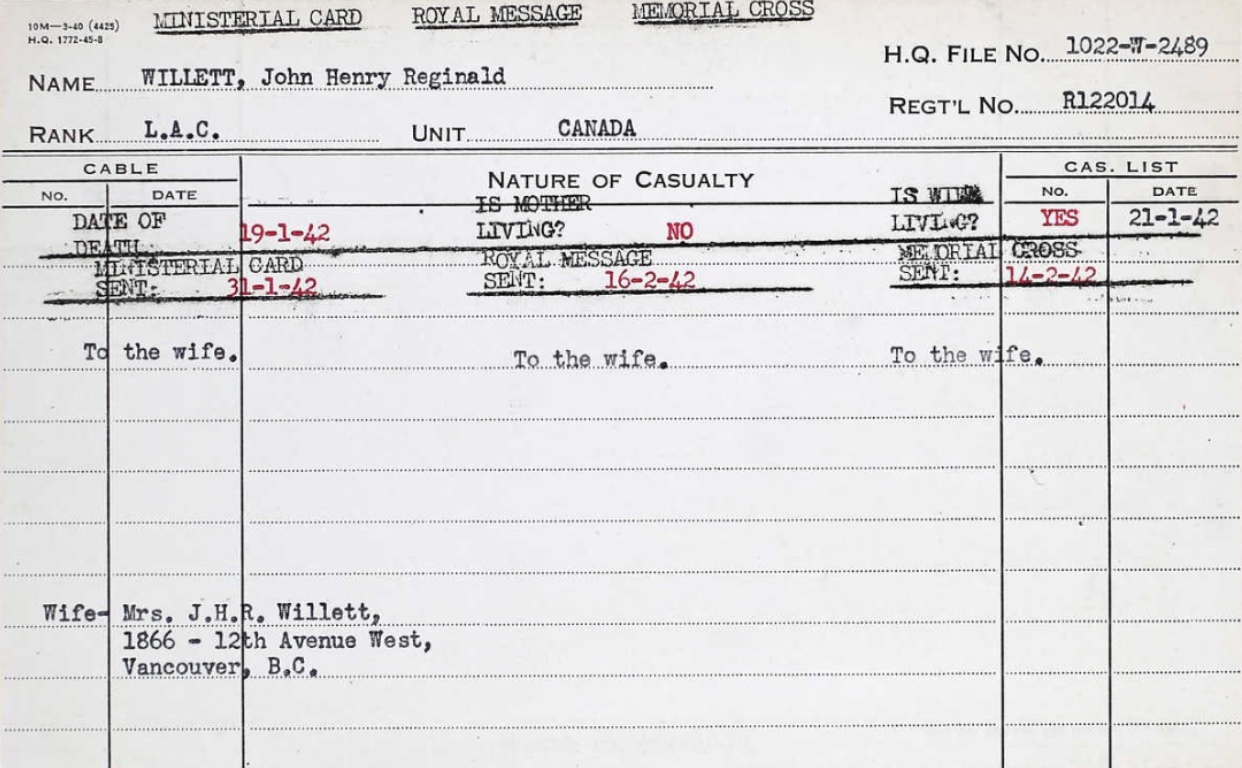 MINISTERIAL CARD ROYAL MESSAGE MEMORIAL CROSS
10M—3-40 (4425)
H.Q. 1772-45-8
H.Q. FILE NO. 1022-W-2489
NAME WILLETT, John Henry Reginald
REGT'L NO. R122014
RANK L.A.C. UNIT CANADA
CABLE NATURE OF CASUALTY CAS. LIST
NO. DATE NO. DATE
IS MOTHER IS WIFE
DATE OF LIVING? NO LIVING? YES 21-1-42
DEATH 19-1-42
MINISTERIAL CARD ROYAL MESSAGE MEMORIAL CROSS
SENT: 31-1-42 SENT: 16-2-42 SENT: 14-2-42
To the wife. To the wife. To the wife.
Wife- Mrs. J.H.R. Willett,
1866 - 12th Avenue West,
Vancouver, B.C.